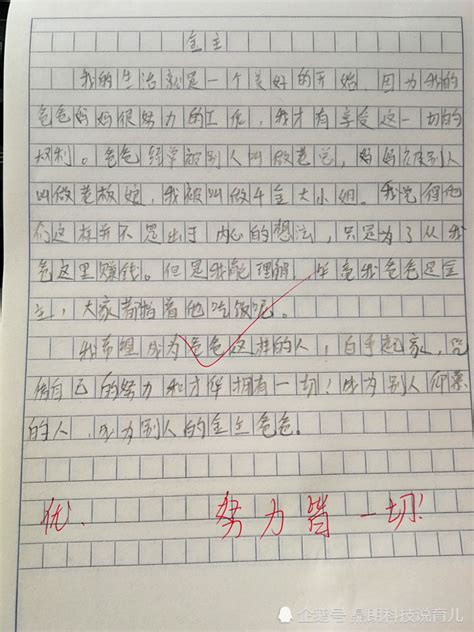 金主
我的生活就是一个美好的开始,因为我的
爸爸妈妈很努力的工作,我才有享受这一切的
权利。爸爸经常被别人叫做老总,妈妈被别人
叫做老板娘,我被叫做千金大小姐。我觉得他
们这样并不是出于内心的想法,只是为了从我
爸这里赚钱。但是我能理解,毕竟我爸爸是金
主,大家都指着他吃饭呢。
我希望成为爸爸这样的人,白手起家,凭
借自己的努力和才华拥有一切!成为别人仰慕
的人,成为别人的金主爸爸。
优. 努力皆一切!
企鹅号 晨朗科技说育儿